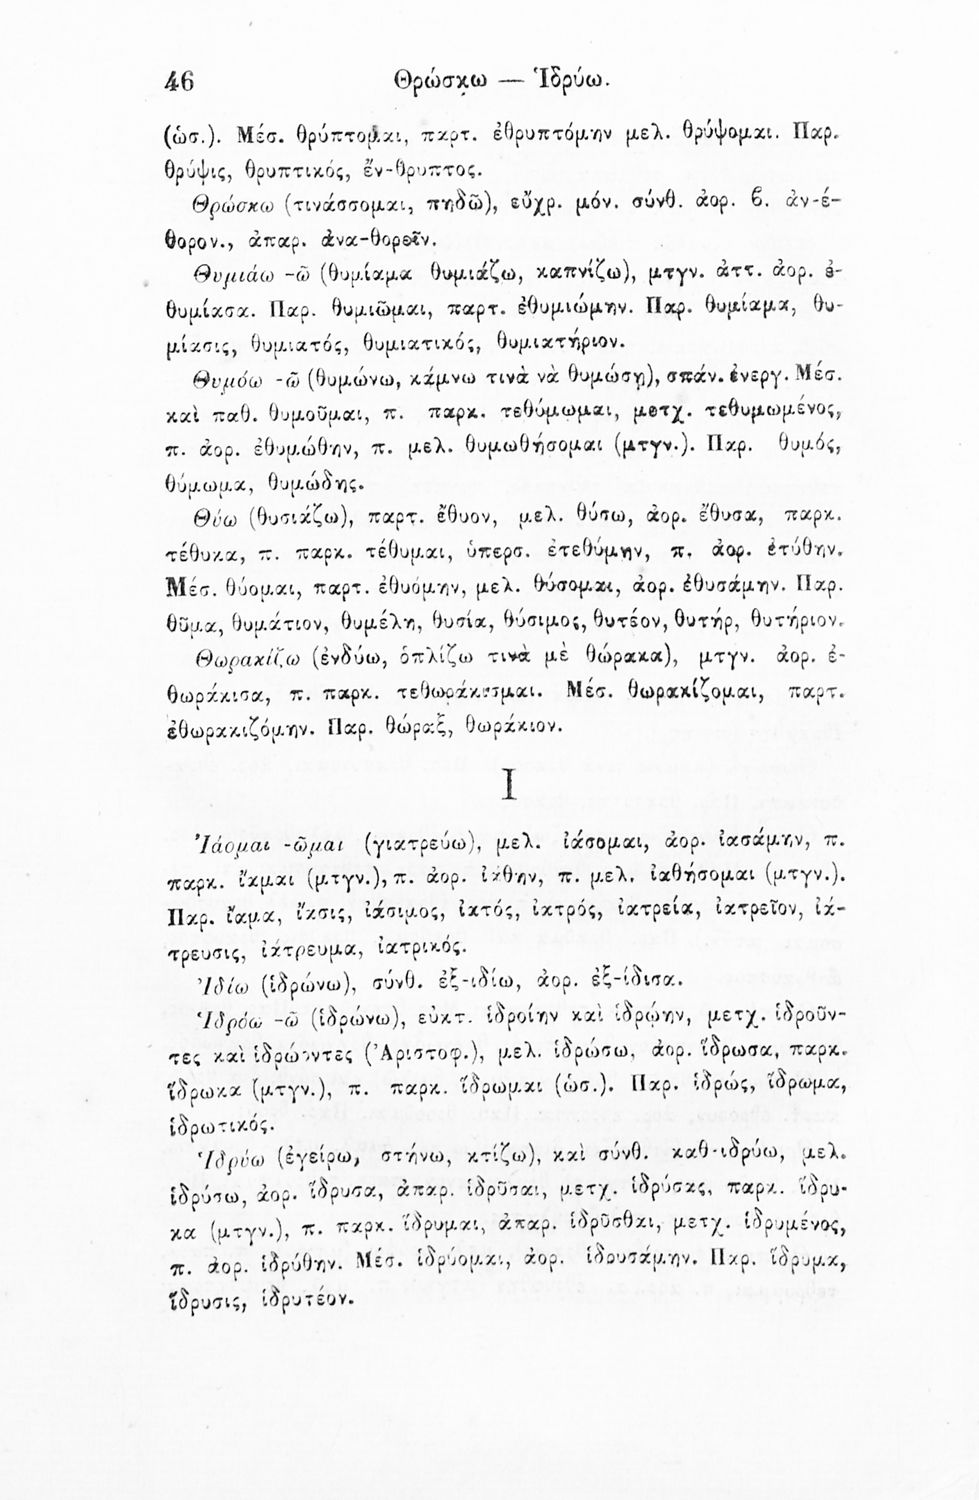 46 Θρώσκω — Ἱδρύω.
(ὡσ.). Μέσ. θρύπτομαι, παρτ. ἐθρυπτόμην μελ. θρύψομαι. Παρ.
θρύψις, θρυπτικός, ἔν-θρυπτος.
Θρώσκω (τινάσσομαι, πηδῶ), εὔχρ. μόν. σύνθ. ἀορ. ϐ. ἀν-έ-
θορον., ἀπαρ. ἀνα-θορεῖν.
Θυμιάω -ῶ (θυμίαμα θυμιάζω, καπνίζω), μτγν. ἀττ. ἀορ. ἐ-
θυμίασα. Παρ. θυμιῶμαι, παρτ. ἐθυμιώμην. Παρ. θυμίαμα, θυ-
μίασις, θυμιατός, θυμιατικός, θυμιατήριον.
Θυμόω -ῶ (θυμώνω, κάμνω τινὰ νὰ θυμώσῃ), σπάν. ἐνεργ. Μέσ.
καὶ παθ. θυμοῦμαι, π. παρκ. τεθύμωμαι, μετχ. τεθυμωμένος,
π. ἀορ. ἐθυμώθην, π. μελ. θυμωθήσομαι (μτγν.). Παρ. θυμός,
θύμωμα, θυμώδης.
Θύω (θυσιάζω), παρτ. ἔθυον, μελ. θύσω, ἀορ. ἔθυσα, παρκ.
τέθυκα, π. παρκ. τέθυμαι, ὑπερσ. ἐτεθύμην, π. ἀορ. ἐτύθην.
Μέσ. θύομαι, παρτ. ἐθυόμην, μελ. θύσομαι, ἀορ. ἐθυσάμην. Παρ.
θῦμα, θυμάτιον, θυμέλη, θυσία, θύσιμος, θυτέον, θυτήρ, θυτήριον.
Θωρακίζω (ἐνδύω, ὁπλίζω τινὰ μὲ θώρακα), μτγν. ἀορ. ἐ-
θωράκισα, π. παρκ. τεθωράκισμαι. Μέσ. θωρακίζομαι, παρτ.
ἐθωρακιζόμην. Παρ. θώραξ, θωράκιον.
Ι
Ἰάομαι -ῶμαι (γιατρεύω), μελ. ἰάσομαι, ἀορ. ἰασάμην, π.
παρκ. ἴαμαι (μτγν.), π. ἀορ. ἰάθην, π. μελ. ἰαθήσομαι (μτγν.).
Παρ. ἴαμα, ἴασις, ἰάσιμος, ἰατός, ἰατρός, ἰατρεία, ἰατρεῖον, ἰά-
τρευσις, ἰάτρευμα, ἰατρικός.
Ἰδίω (ἱδρώνω), σύνθ. ἐξ-ιδίω, ἀορ. ἐξ-ίδισα.
Ἱδρόω -ῶ (ἱδρώνω), εὐκτ. ἱδροίην καὶ ἱδρῴην, μετχ. ἱδροῦν-
τες καὶ ἱδρώοντες (Ἀριστοφ.), μελ. ἱδρώσω, ἀορ. ἵδρωσα, παρκ.
ἵδρωκα (μτγν.), π. παρκ. ἵδρωμαι (ὡσ.). Παρ. ἱδρώς, ἵδρωμα,
ἱδρωτικός.
Ἱδρύω (ἐγείρω, στήνω, κτίζω), καὶ σύνθ. καθ-ιδρύω, μελ.
ἱδρύσω, ἀορ. ἵδρυσα, ἀπαρ. ἱδρῦσαι, μετχ. ἱδρύσας, παρκ. ἵδρυ-
κα (μτγν.), π. παρκ. ἵδρυμαι, ἀπαρ. ἱδρῦσθαι, μετχ. ἱδρυμένος,
π. ἀορ. ἱδρύθην. Μέσ. ἱδρύομαι, ἀορ. ἱδρυσάμην. Παρ. ἵδρυμα,
ἵδρυσις, ἱδρυτέον.